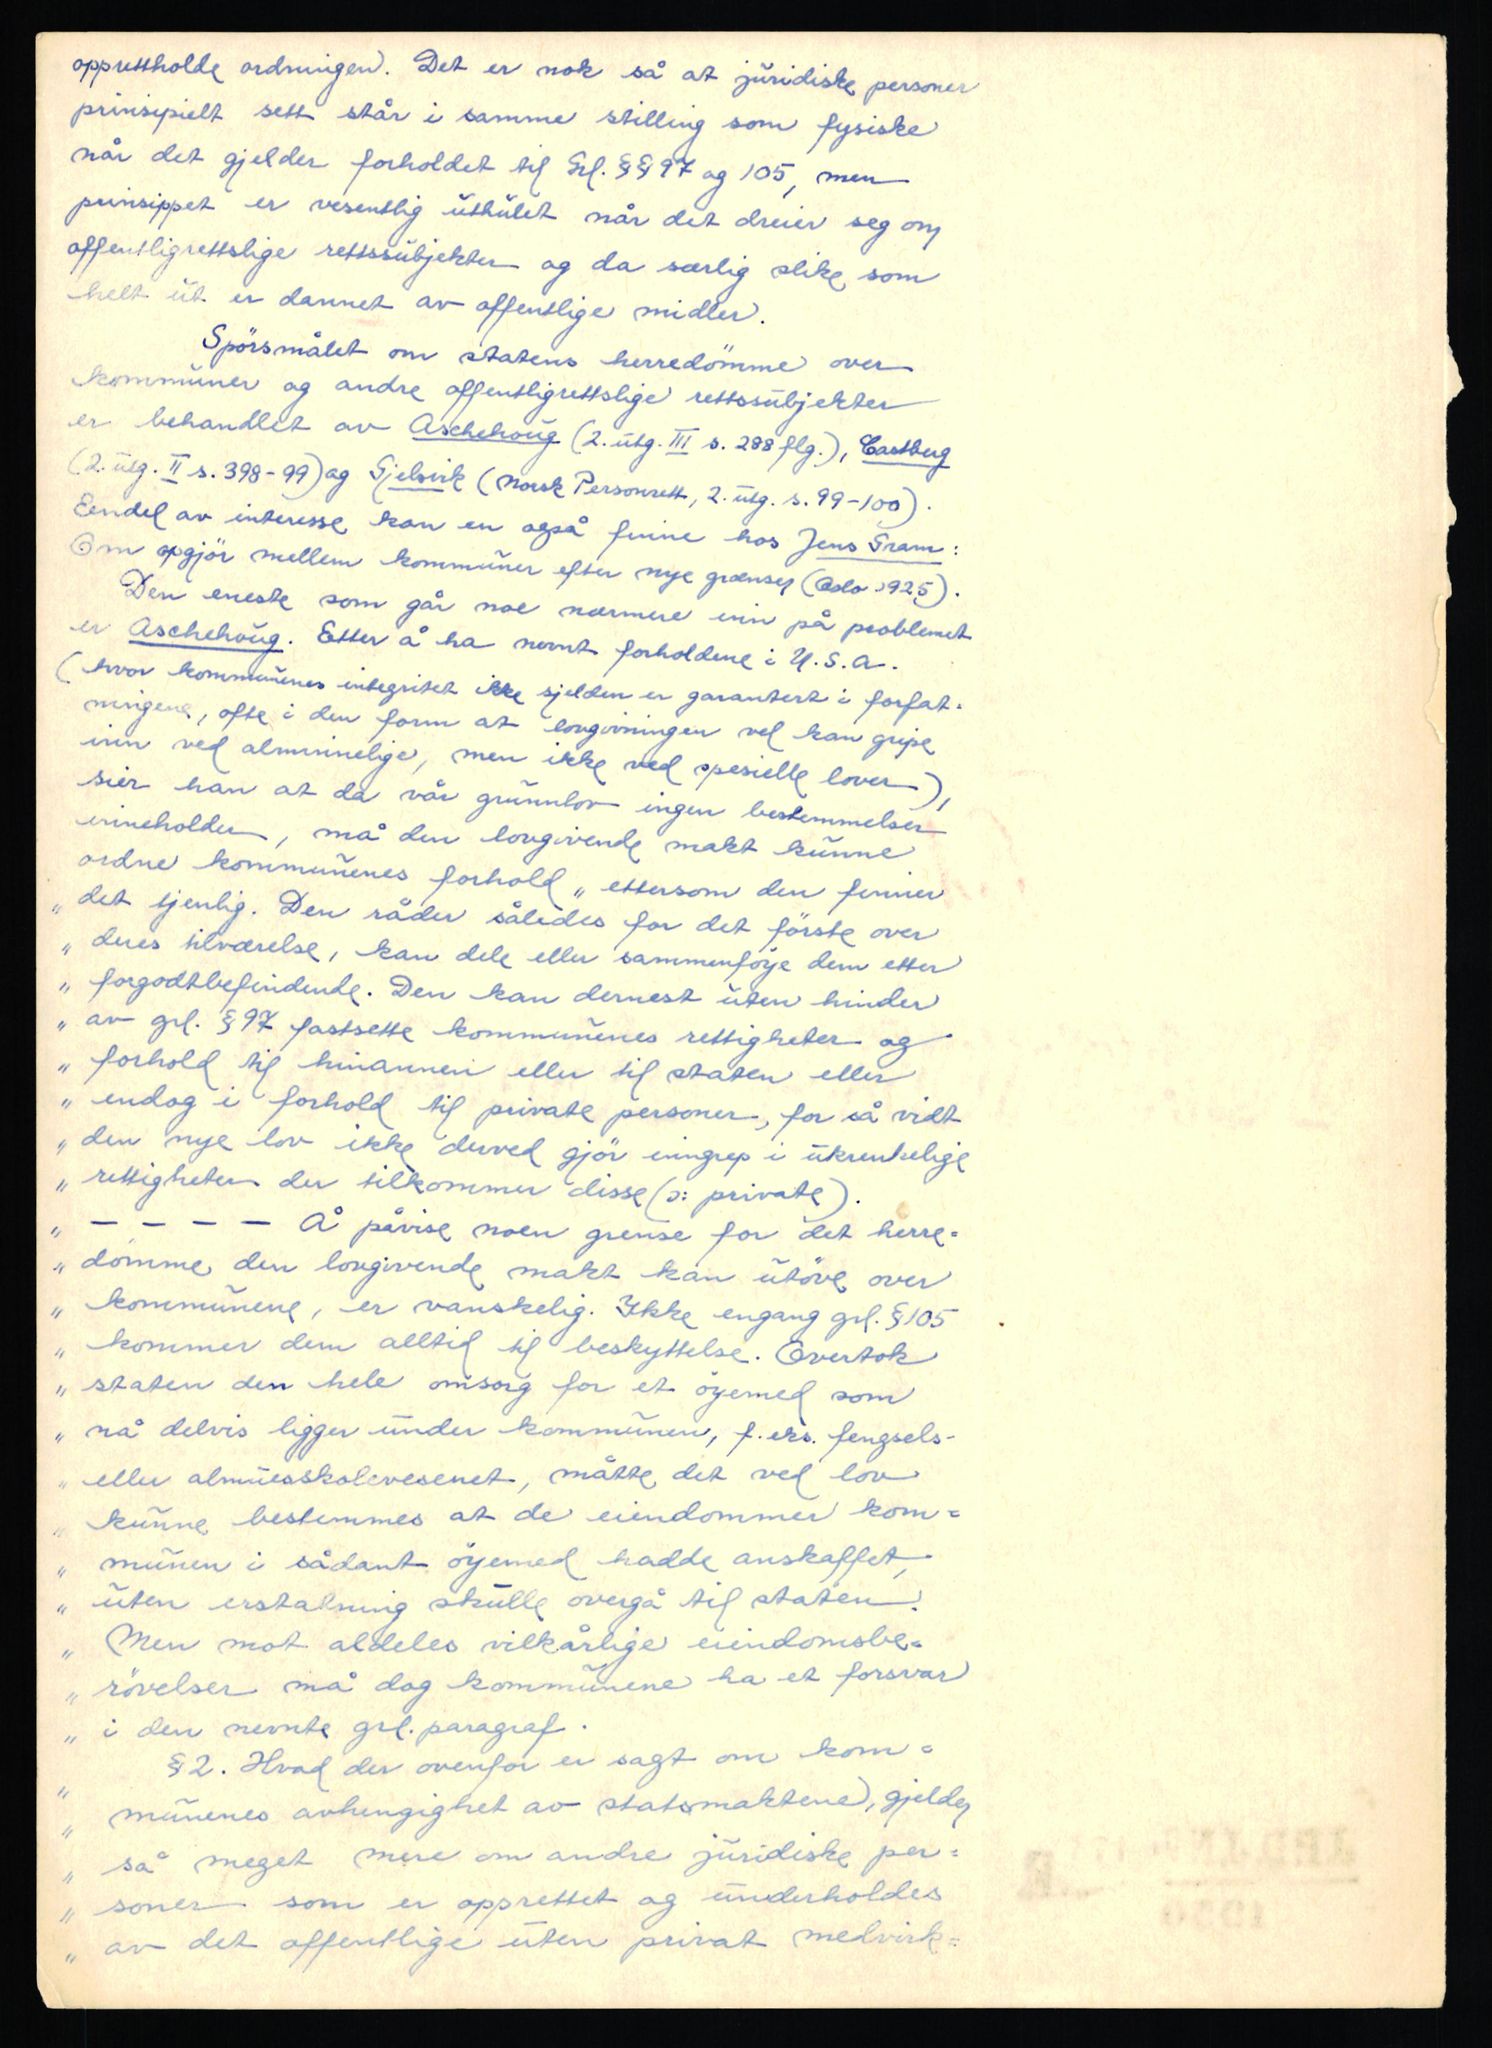 opprettholde ordningen. Det er nok så at juridiske personer
prinsipielt sett står i samme stilling som fysiske
når det gjelder forholdet til Grl. §§ 97 og 105, men
prinsippet er vesentlig uthulet når det dreier seg om
offentligrettslige rettssubjekter og da særlig slike som
helt ut er dannet av offentlige midler.
Spörsmålet om statens herredömme over
kommuner og andre offentligrettslige rettssubjekter
er behandlet av Aschehoug (2. utg. III s. 288 flg.), Castberg
(2. utg. II s. 398-99) og Gjelsvik (Norsk Personrett, 2. utg. s. 99-100).
Eendel av interesse kan en også finne hos Jens Gram:
Om opgjör mellem kommuner efter nye grænser (Oslo 1925).
Den eneste som går noe nærmere inn på problemet
er Aschehoug. Etter å ha nevnt forholdene i U.S.A.
(hvor kommunenes integritet ikke sjelden er garantert i forfat=
ningene, ofte i den form at lovgivningen vel kan gripe
inn ved alminnelige, men ikke ved spesielle lover),
sier han at da vår grunnlov ingen bestemmelser
inneholder, må den lovgivende makt kunne
ordne kommunenes forhold „ ettersom den finner
„ det tjenlig. Den råder således for det förste over
„ deres tilværelse, kan dele eller sammenföye dem etter
„ forgodtbefindende. Den kan dernest uten hinder
„ av grl. § 97 fastsette kommunenes rettigheter og
„ forhold til hinannen eller til staten eller
„ endog i forhold til private personer, for så vidt
„ den nye lov ikke derved gjör inngrep i ukrenkelige
„ rettigheter der tilkommer disse (ɔ: private).
„ — — — — Å påvise noen grense for det herre=
„ dömme den lovgivende makt kan utöve over
„ kommunene, er vanskelig. Ikke engang grl. § 105
„ kommer dem alltid til beskyttelse. Overtok
„ staten den hele omsorg for et öyemed som
„ nå delvis ligger under kommunen, f. eks. fengsels-
„ eller almuesskolevesenet, måtte det ved lov
„ kunne bestemmes at de eiendommer kom=
„ munen i sådant öyemed hadde anskaffet,
„ uten erstatning skulle overgå til staten.
„ Men mot aldeles vilkårlige eiendomsbe=
„ rövelser må dog kommunene ha et forsvar
„ i den nevnte grl. paragraf.
„ § 2. Hvad der ovenfor er sagt om kom=
„ munenes avhengighet av statsmaktene, gjelder
„ så meget mere om andre juridiske per=
„ soner som er opprettet og underholdes
„ av det offentlige uten privat medvirk=